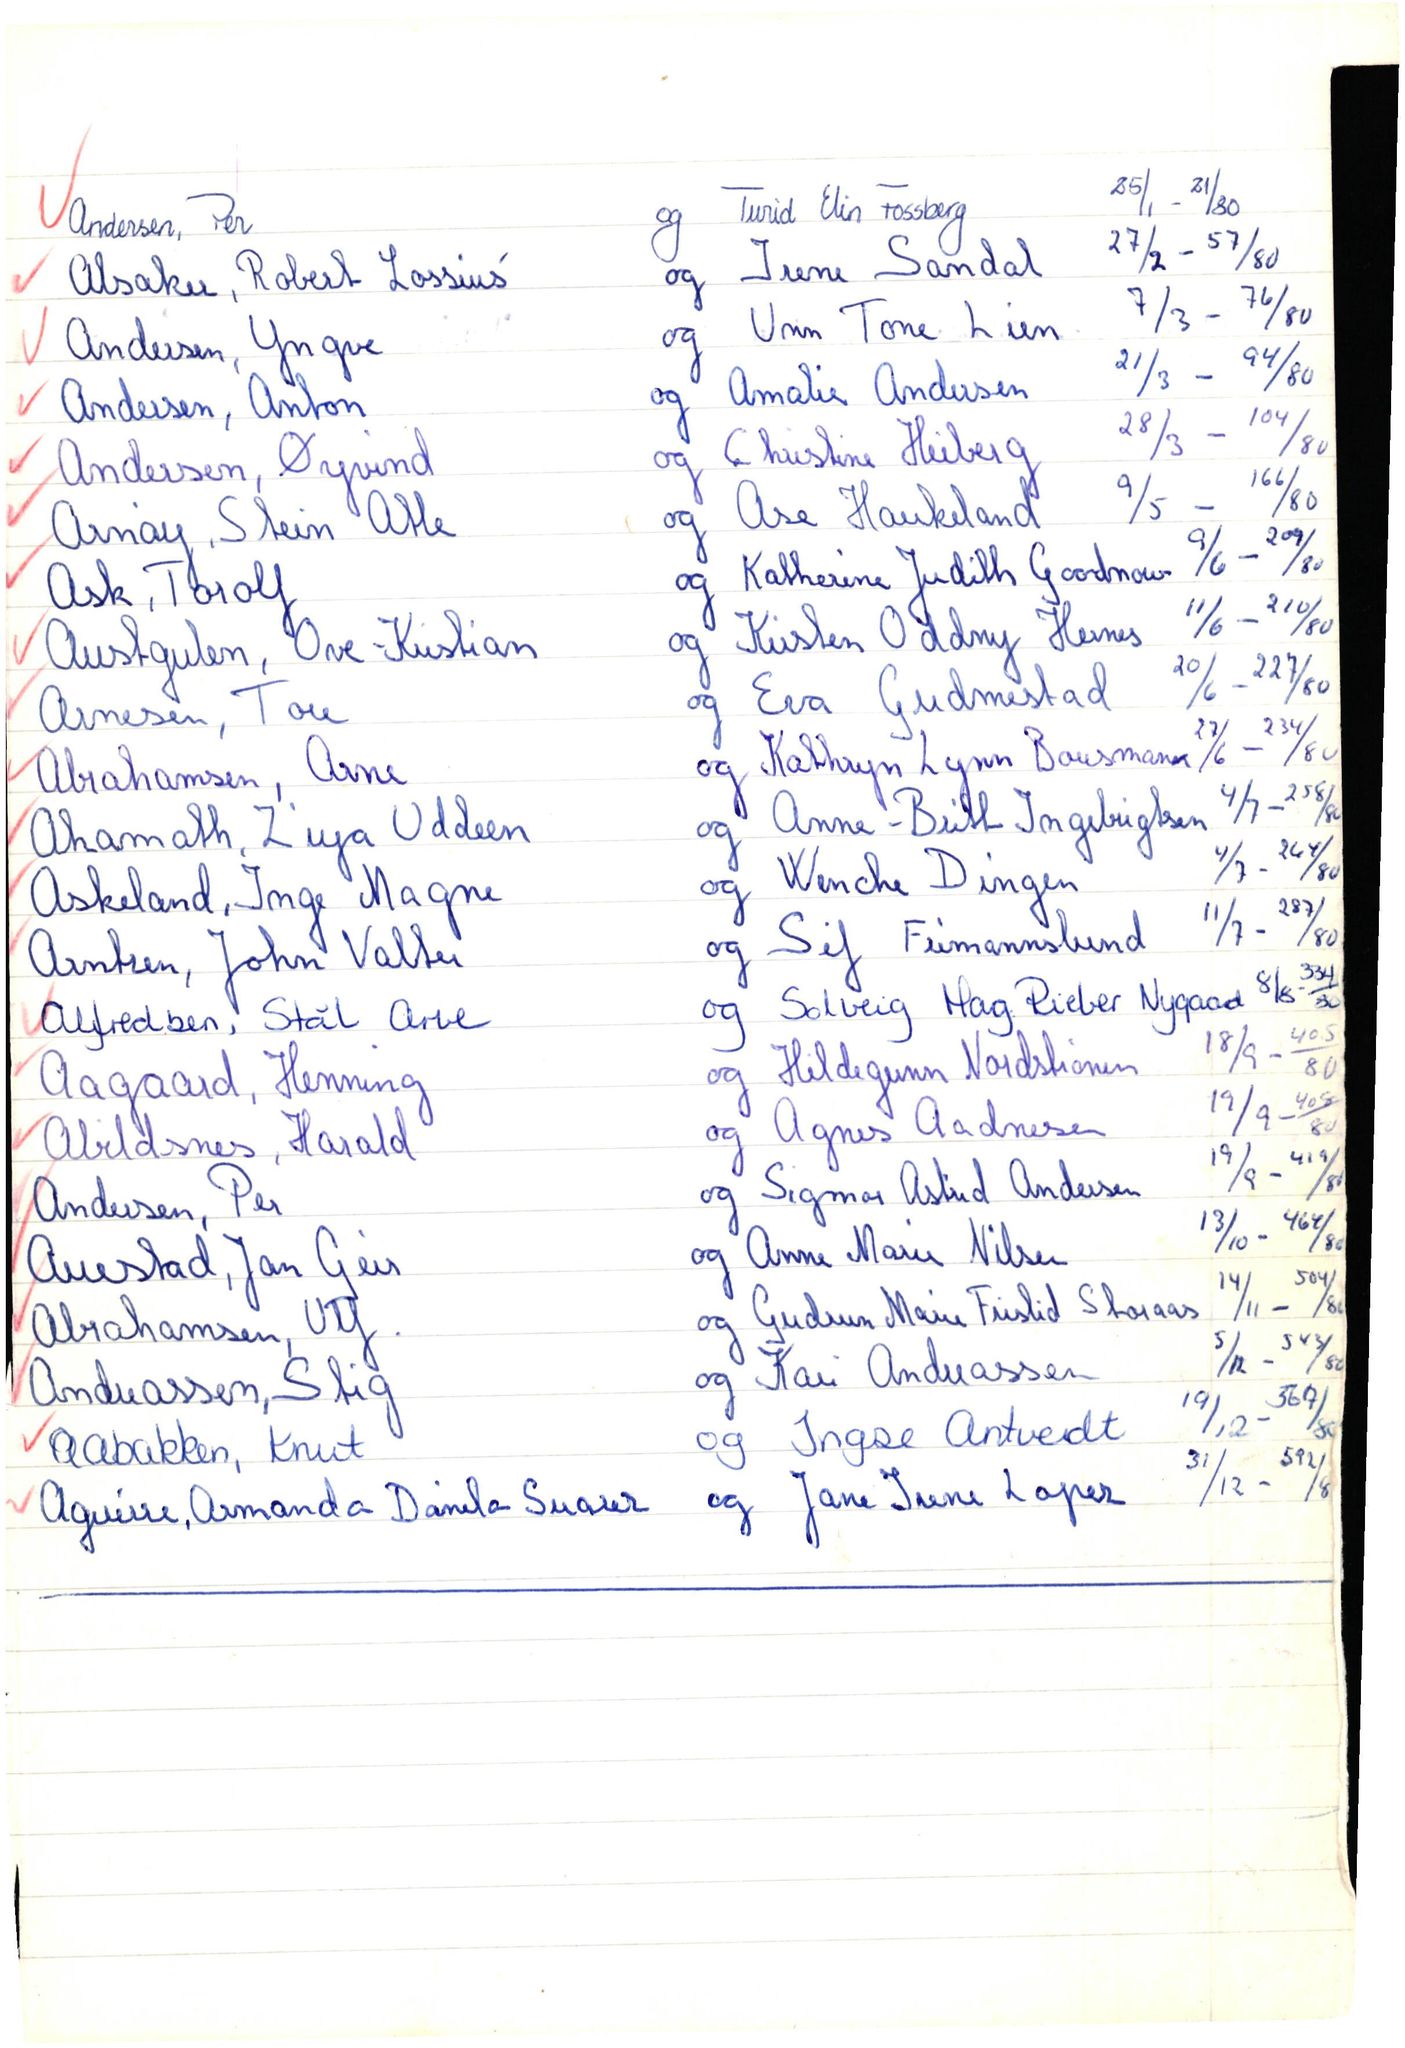 Andersen, Per og Turid Elin Fossberg 25/1 - 21/80
Alsaker, Robert Lossius og Irene Sandal 27/2 - 57/80
Andersen, Yngve og Unn Tone Lien 7/3 - 76/80
Andersen, Anton og Amalie Andersen 21/3 - 94/80
Andersen, Øyvind og Christine Heiberg 28/3 - 104/80
Arnøy, Stein Atle og Åse Haukeland 9/5 - 166/80
Ask, Torolf og Katherine Judith Goodnow 9/6 - 209/80
Austgulen, Ove-Kristian og Kirsten Oddny Hernes 11/6 - 210/80
Arnesen, Tore og Eva Gudmestad 20/6 - 227/80
Abrahamsen, Arne og Kathryn Lynn 27/6 - 234/80
Ahamath, Ziya Uddeen og Anne-Berit Ingebrigtsen 4/7 - 258/80
Askeland, Inge Magne og Wenche Dingen 4/7 - 264/80
Arntzen, John Valter og Sif Feimannslund 11/7 - 287/80
Alfredsen, Stål Arve og Solveig Mag. Rieber Nygaard 8/8 - 334/80
Aagaard, Henning og Hildegunn Nordstrønen 18/9 - 405/80
Abildsnes, Harald og Agnes Aadnesen 19/9 - 408/80
Andersen, Per og Sigmor Astrid Andersen 19/9 - 419/80
Auestad, Jan Geir og Anne Marie Nilsen 13/10 - 464/80
Abrahamsen, Ulf. og Gudrun Marie Storaas 14/11 - 504/80
Andreassen, Stig og Kari Andreassen 5/12 - 543/80
Aabakken, Knut og Ingse Antvedt 19/12 - 567/80
Aguirre, Armanda Danila Suarez og Jane Irene Lopez 31/12 - 592/8